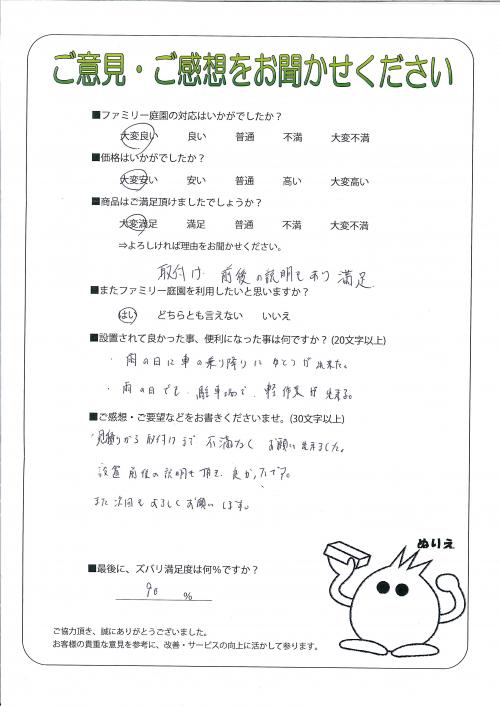 ご意見・ご感想をお聞かせください
■ファミリー庭園の対応はいかがでしたか？
大変良い 良い 普通 不満 大変不満
■価格はいかがでしたか？
大変安い 安い 普通 高い 大変高い
■商品はご満足頂けましたでしょうか？
大変満足 満足 普通 不満 大変不満
⇒よろしければ理由をお聞かせください。
取付け 前後の説明もあり 満足
■またファミリー庭園を利用したいと思いますか？
はい どちらとも言えない いいえ
■設置されて良かった事、便利になった事は何ですか？(20文字以上)
・雨の日に車の乗り降りにゆとりが出来た。
・雨の日でも、駐車場で、軽作業が出来る。
■ご感想・ご要望などをお書きくださいませ。(30文字以上)
見積りから取付けまで不満なくお願い出来ました。
設置前後の説明も頂き、良かったです。
また次回もよろしくお願いします。
ぬりえ
■最後に、ズバリ満足度は何％ですか？
90 ％
ご協力頂き、誠にありがとうございました。
お客様の貴重な意見を参考に、改善・サービスの向上に活かして参ります。